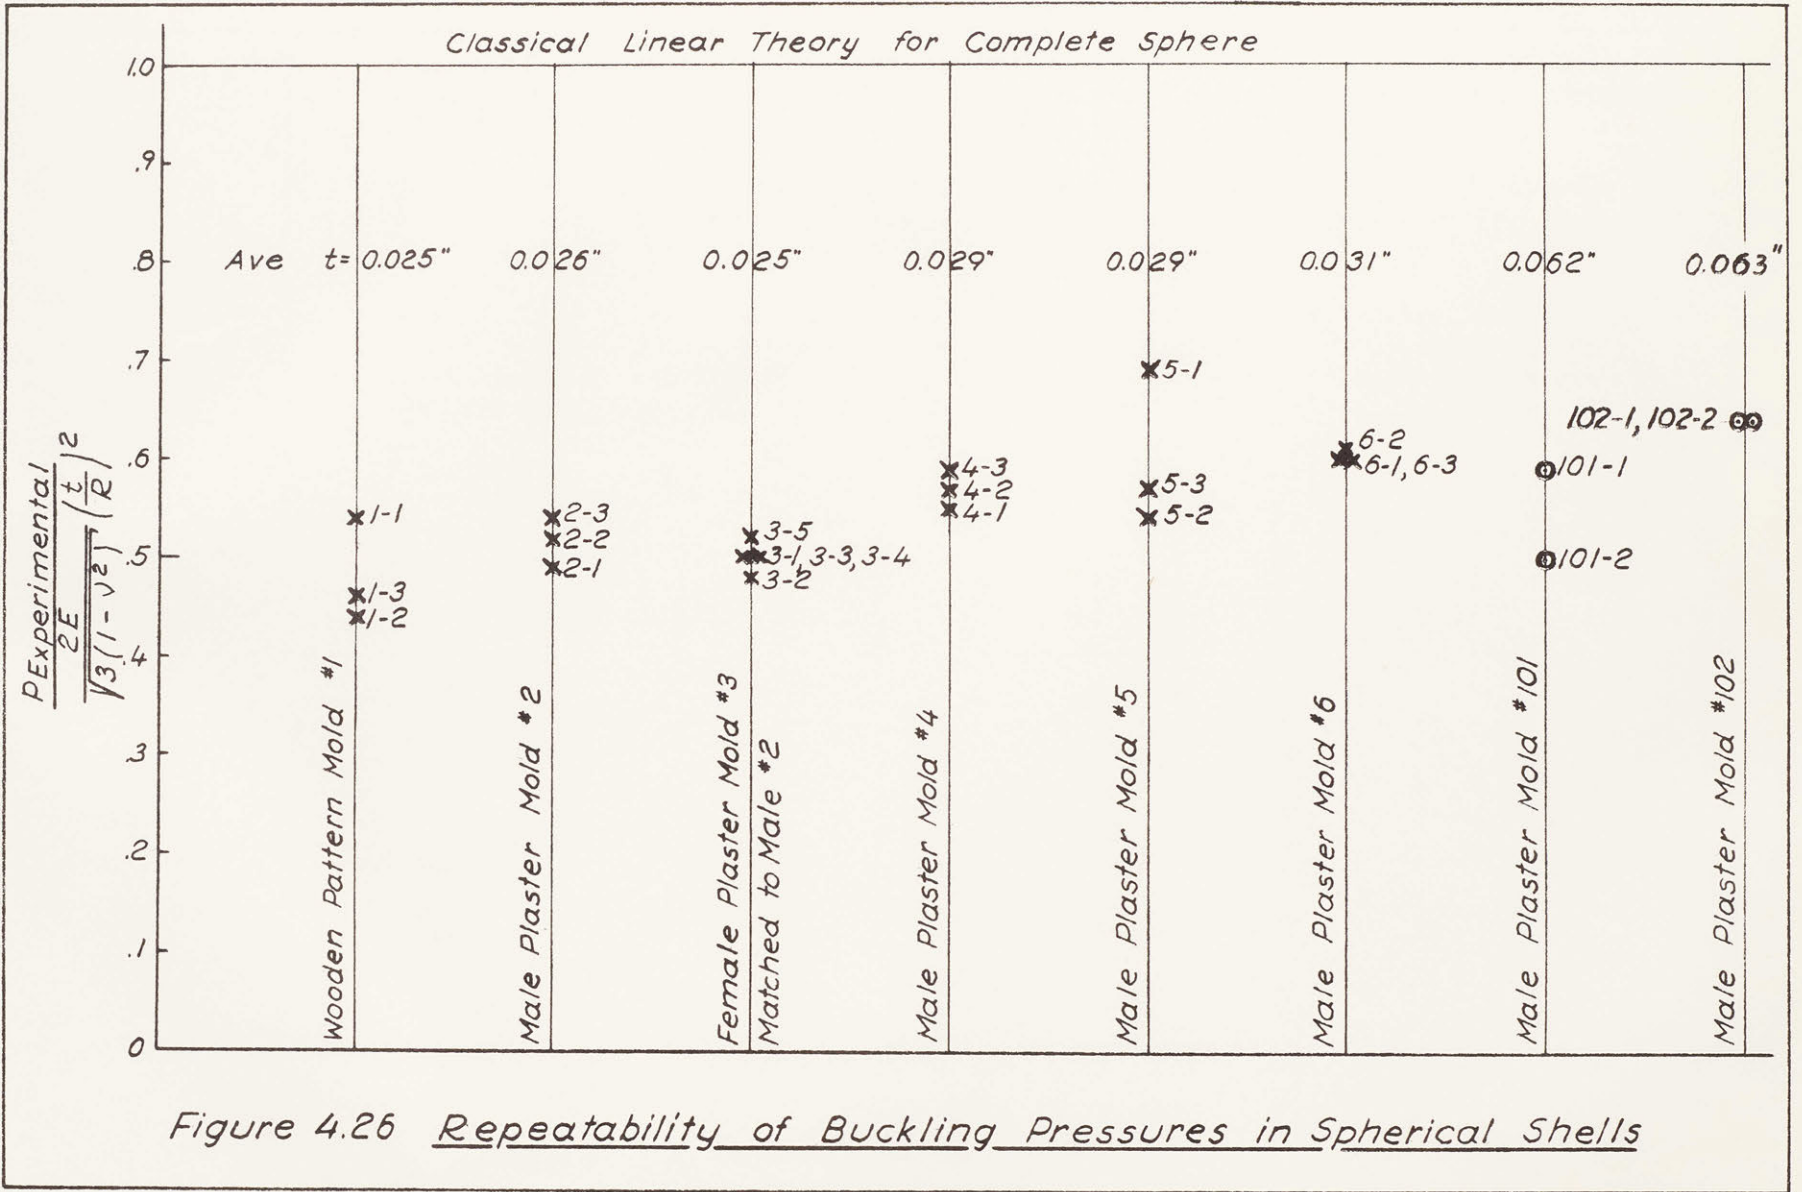 Classical Linear Theory for Complete Sphere
1.0
.9
.8
.7
.6
.5
.4
.3
.2
.1
0
PExperimental
2E
√3(1-ν²) (t/R)²
Ave t= 0.025" 0.026" 0.025" 0.029" 0.029" 0.031" 0.062" 0.063"
1-1
1-3
1-2
2-3
2-2
2-1
3-5
3-1, 3-3, 3-4
3-2
4-3
4-2
4-1
5-1
5-3
5-2
6-2
6-1, 6-3
101-1
101-2
102-1, 102-2
Wooden Pattern Mold #1
Male Plaster Mold #2
Female Plaster Mold #3
Matched to Male #2
Male Plaster Mold #4
Male Plaster Mold #5
Male Plaster Mold #6
Male Plaster Mold #101
Male Plaster Mold #102
Figure 4.26 Repeatability of Buckling Pressures in Spherical Shells